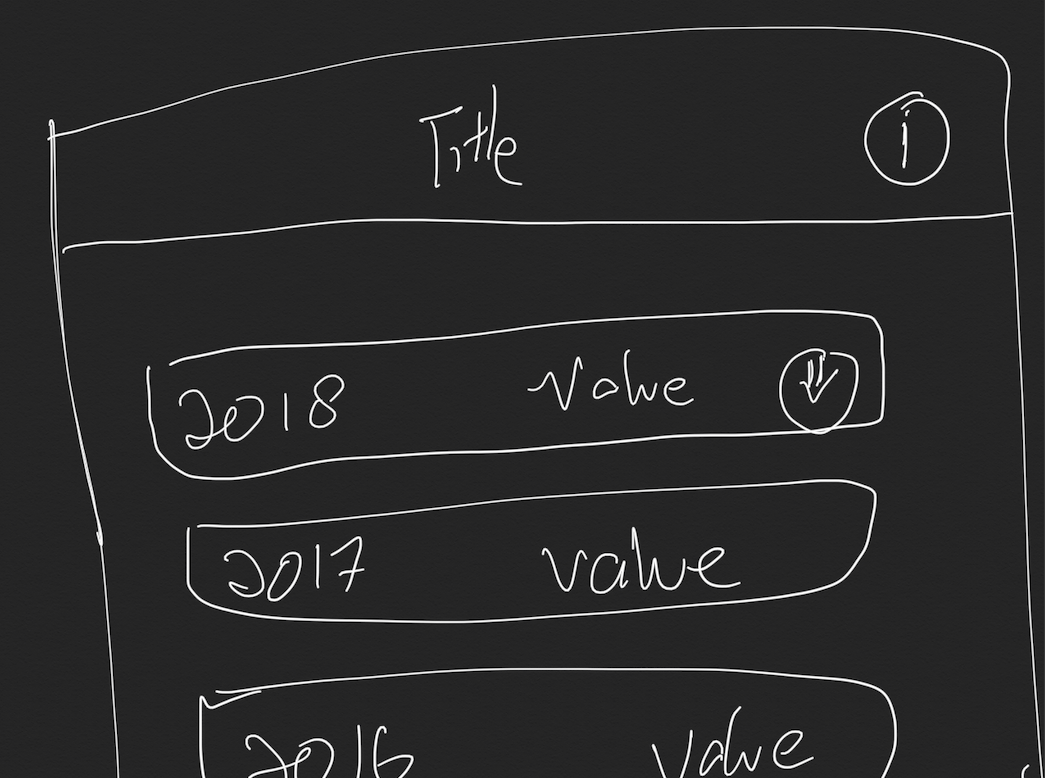 Title i
2018 Value
2017 value
2016 Value